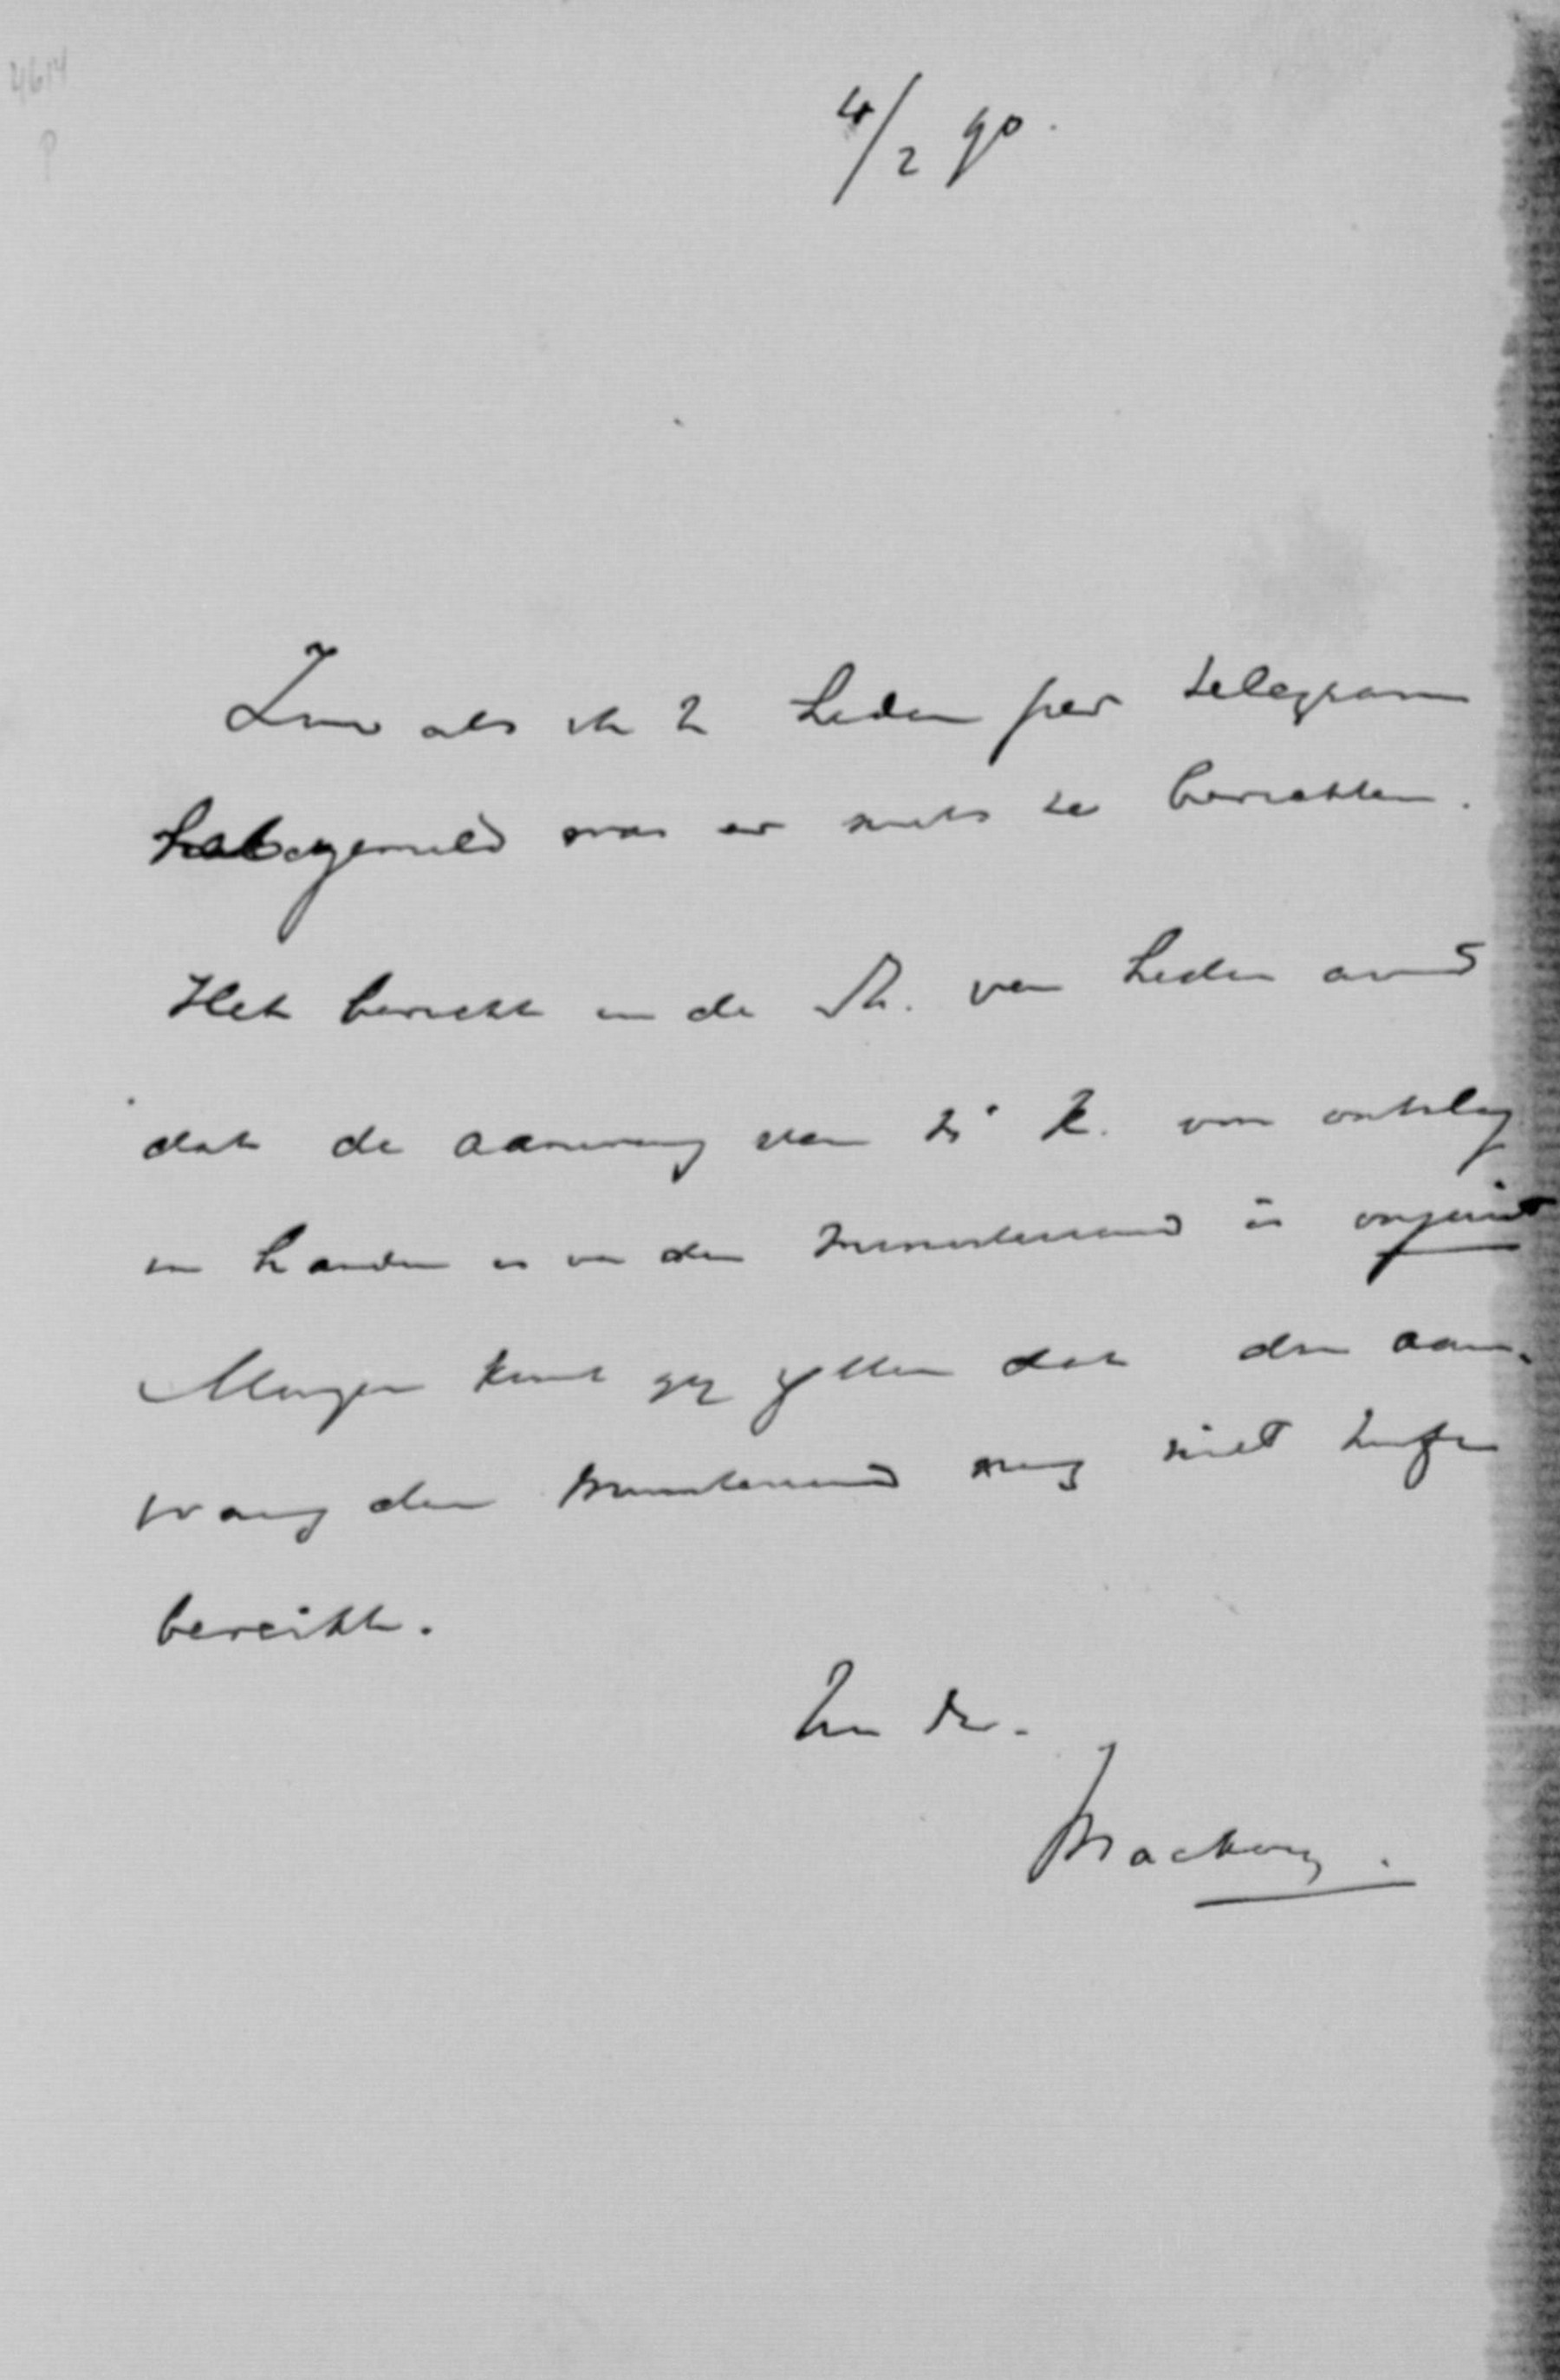 4614
4/2 90.
Zoo als ik U heden per telegram
heb gemeld was er niets te berichten.
Het bericht in de St. van heden avond
dat de aanvrag van K. om ontslag
in handen is van den Ministerraad is onjuist
Morgen kunt gij zetten dat die aan-
vraag den Ministerraad nog niet heeft
bereikt.
Uw dr.
Mackay.